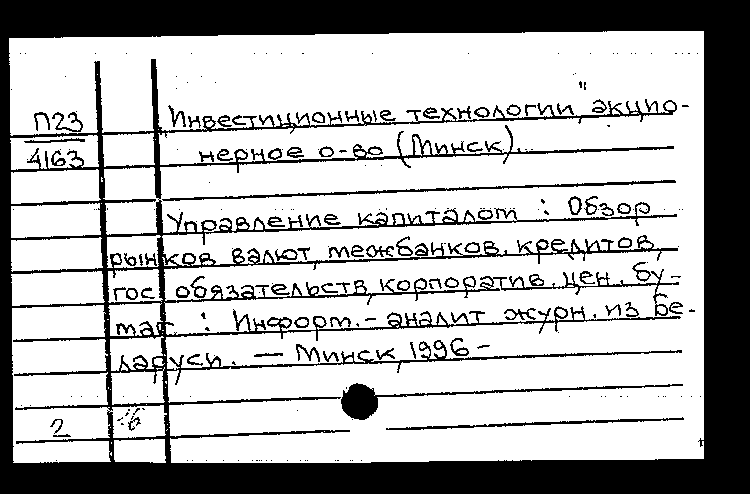 П23
4163
"Инвестиционные технологии", акцио-
нерное о-во (Минск).
Управление капиталом : Обзор
рынков валют, межбанков. кредитов,
гос обязательств, корпоратив. цен. бу-
маг : Информ.-аналит журн. из Бе-
ларуси. — Минск, 1996 -
2